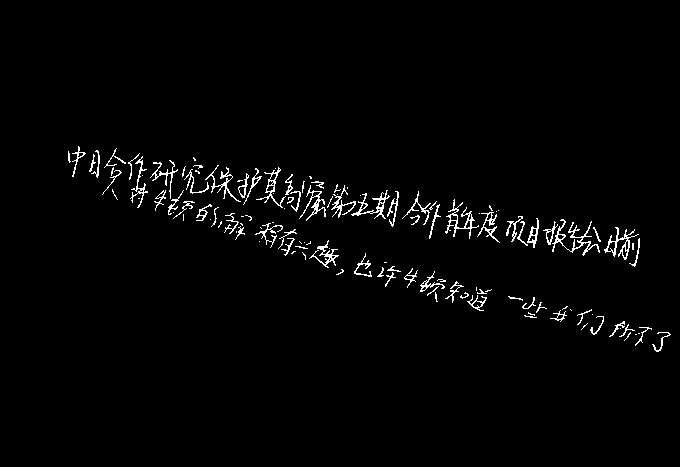 中日合作研究保护莫高窟第五期合作首年度项目报告会日前
人对牛顿的解释有兴趣,也许牛顿知道一些我们所不了